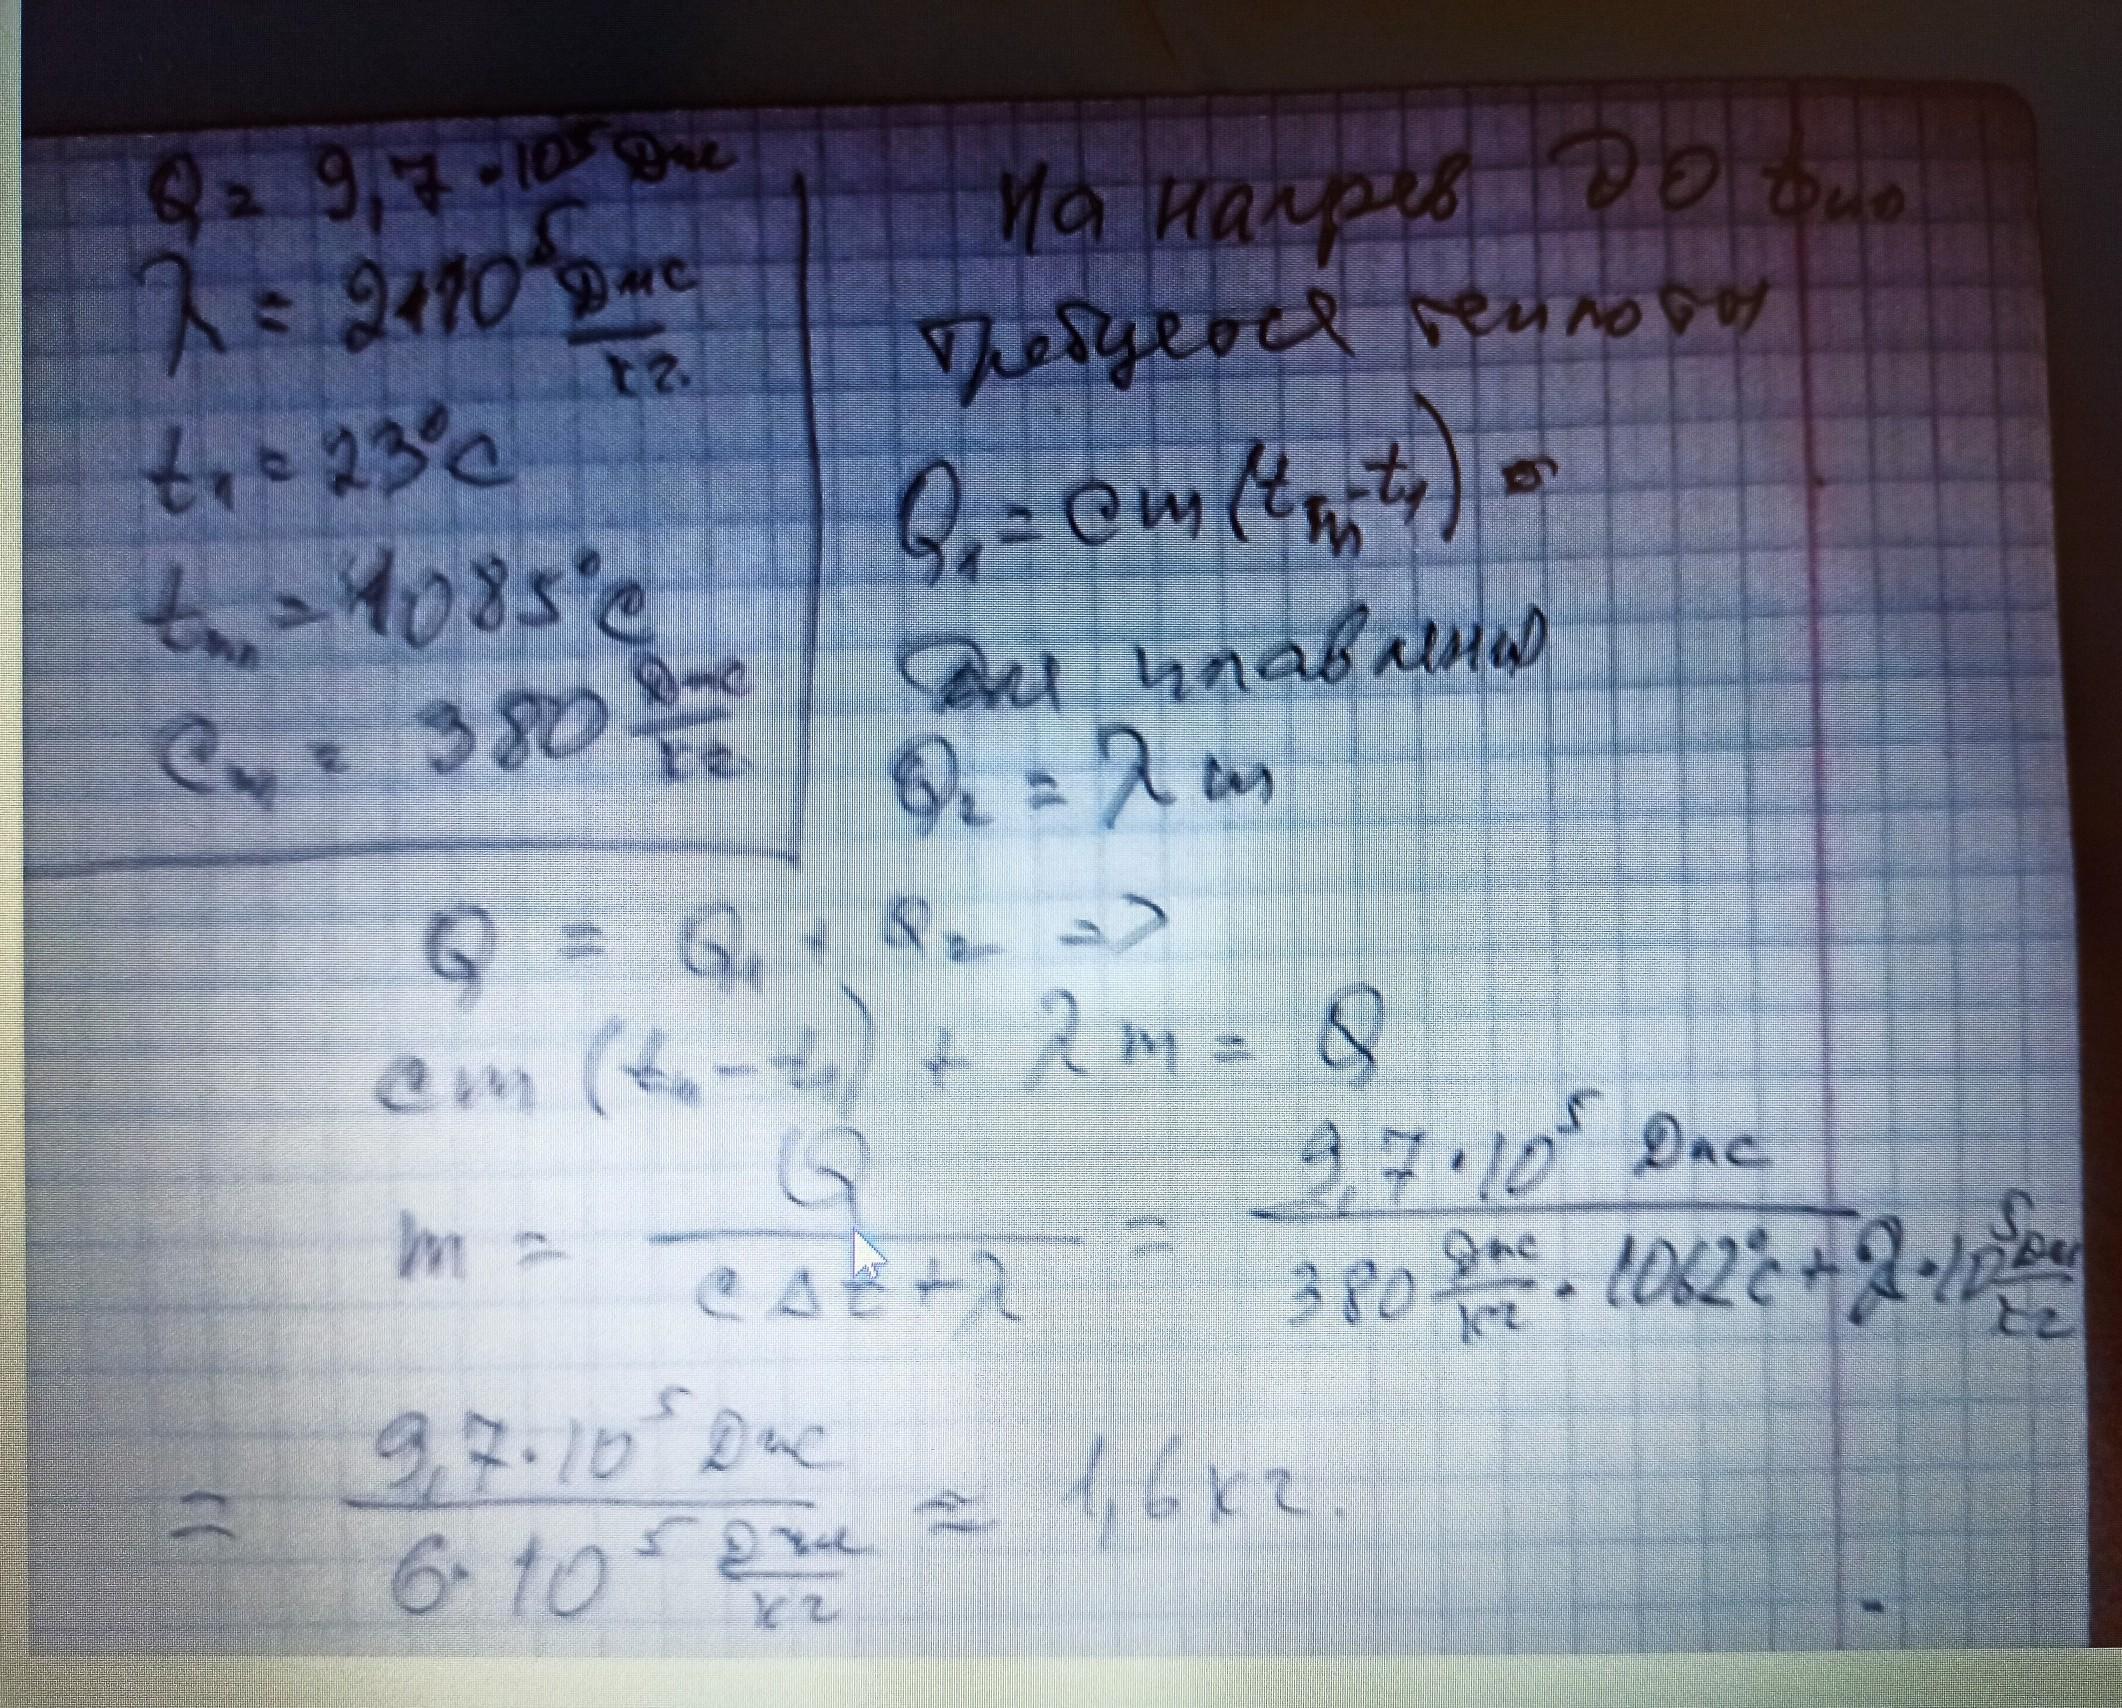 Q = 9,7 · 10⁵ Дж
λ = 2·10⁵ Дж/кг.
t₁ = 23°C
tₘ = 1085°C
cₘ = 380 Дж/кг
На нагрев до tпл
требуется теплоты
Q₁ = cm(tₘ-t₁)
Для плавления
Q₂ = λm
Q = Q₁ + Q₂ =>
cm(tₘ-t₁) + λm = Q
m = Q/(cΔt+λ) = 9,7·10⁵ Дж/(380 Дж/кг · 1062°C + 2·10⁵ Дж/кг)
= 9,7·10⁵ Дж/(6·10⁵ Дж/кг) ≈ 1,6 кг.